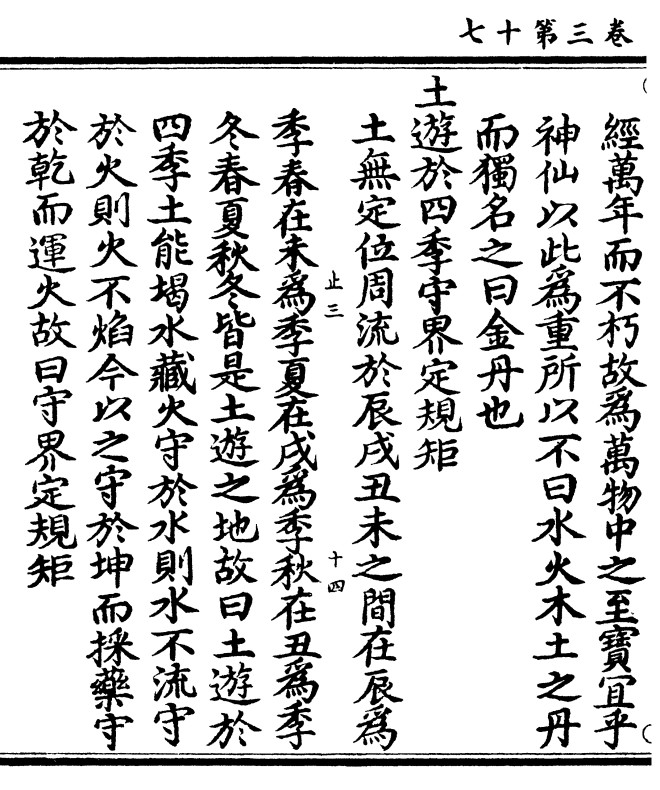 卷三第十七
經萬年而不朽故爲萬物中之至寶宜乎
神仙以此爲重所以不曰水火木土之丹
而獨名之曰金丹也
土遊於四季守界定規矩
土無定位周流於辰戌丑未之間在辰爲
止三
十四
季春在未爲季夏在戌爲季秋在丑爲季
冬春夏秋冬皆是土遊之地故曰土遊於
四季土能堨水藏火守於水則水不流守
於火則火不焰今以之守於坤而採藥守
於乾而運火故曰守界定規矩